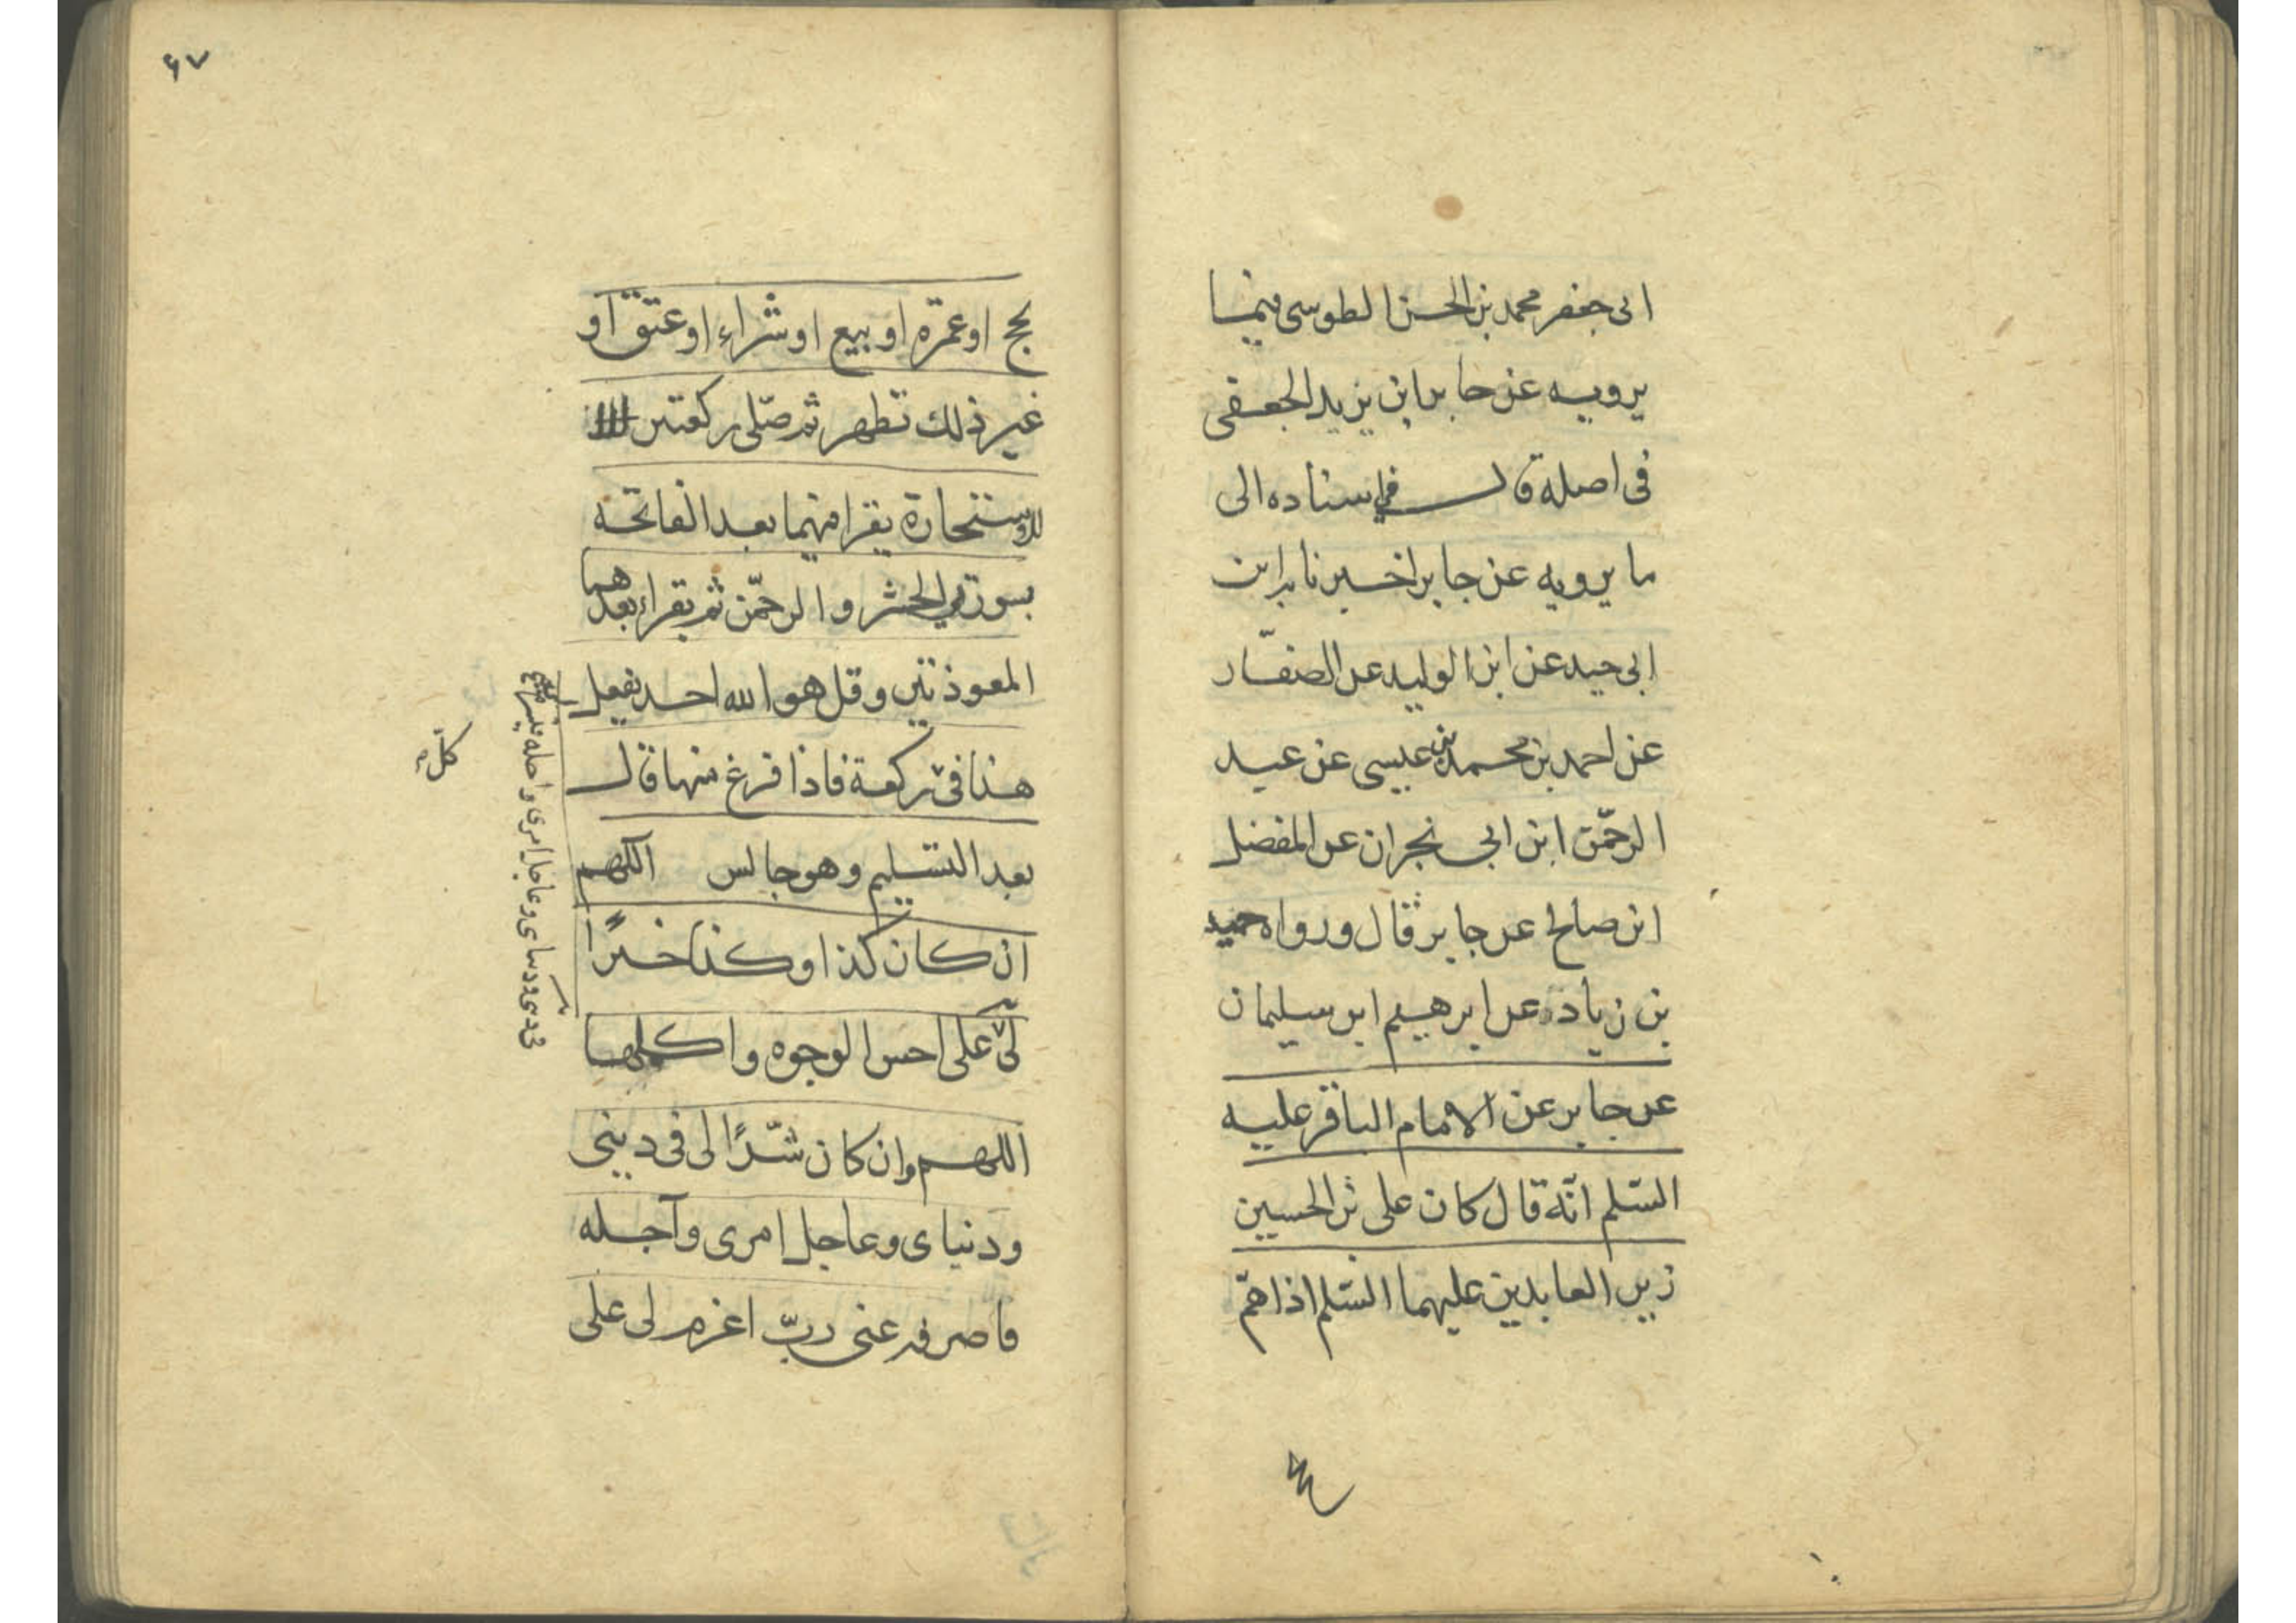 ابى جعفر محمد بن الحسن الطوسى فيما
يرويه عن جابر ابن يزيد الجعفى
فى اصله قال فى اسناده الى
ما يرويه عن جابر اخبرنا به ابن
ابى جيد عن ابن الوليد عن الصفّار
عن احمد بن محمد بن عيسى عن عبد
الرحمن ابن ابى نجران عن المفضل
ابن صالح عن جابر قال ورواه حميد
بن زياد عن ابرهيم ابن سليمان
عن جابر عن الامام الباقر عليه
السّلم انّه قال كان على بن الحسين
زين العابدين عليهما السّلم اذا همّ
۶۷
بحج او عمرة او بيع او شراء او عتق او
غير ذلك تطهر ثم صلّى ركعتين
للاستخارة يقرا فيهما بعد الفاتحة
بسورتى الحشر والرحمن ثم يقراء بعدهما
المعوذتين وقل هو الله احد يفعل
هذا فى كل ركعة فاذا فرغ منها قال
بعد التسليم وهو جالس اللهم
ان كان كذا وكذا خيرًا
فى دينى ودنياى وعاجل امرى واجله فيسره
لى على احسن الوجوه واكملها
اللهم وان كان شرًّا لى فى دينى
ودنياى وعاجل امرى وآجله
فاصرفه عنى ربّ اعزم لى على